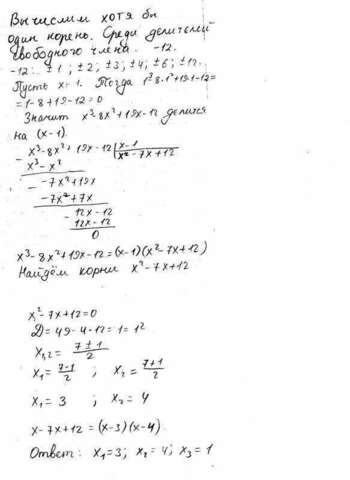 Вычислим хотя бы
один корень. Среди делителей
свободного члена. -12.
-12: ±1; ±2; ±3; ±4; ±6; ±12.
Пусть x=1. Тогда 1³-8·1²+19·1-12=
=1-8+19-12=0
Значит x³-8x²+19x-12 делится
на (x-1).
x³-8x²+19x-12 | x-1
x³-x² x²-7x+12
-7x²+19x
-7x²+7x
12x-12
12x-12
0
x³-8x²+19x-12=(x-1)(x²-7x+12)
Найдём корни x²-7x+12
x²-7x+12=0
D=49-4·12=1=1²
x₁,₂=(7±1)/2
x₁=(7-1)/2 ; x₂=(7+1)/2
x₁=3 ; x₂=4
x-7x+12=(x-3)(x-4)
Ответ: x₁=3; x₂=4; x₃=1